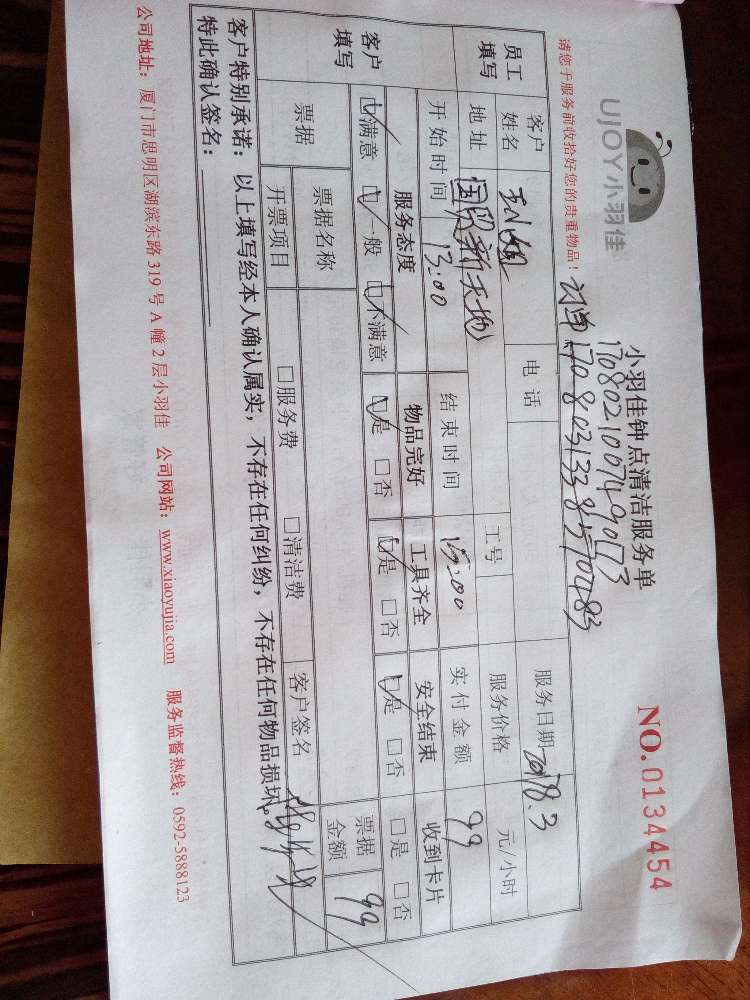 UJOY小羽佳
小羽佳钟点清洁服务单
NO.0134454
请您于服务前收拾好您的贵重物品！
员工填写
客户姓名
电话
服务日期
地址 国贸新天地
工号
服务价格 元/小时
开始时间 13:00
结束时间 15:00
实付金额 99
客户填写
服务态度 物品完好 工具齐全 安全结束 收到卡片
☑满意 ☑一般 ☑不满意 ☑是 □否 ☑是 □否 ☑是 □否 □是 □否
票据
票据名称
票据金额 99
开票项目 □服务费 □清洁费 客户签名
客户特别承诺：以上填写经本人确认属实，不存在任何纠纷，不存在任何物品损坏。
特此确认签名：
公司地址：厦门市思明区湖滨东路 319 号 A 幢 2 层小羽佳 公司网站：www.xiaoyujia.com 服务监督热线：0592-5888123